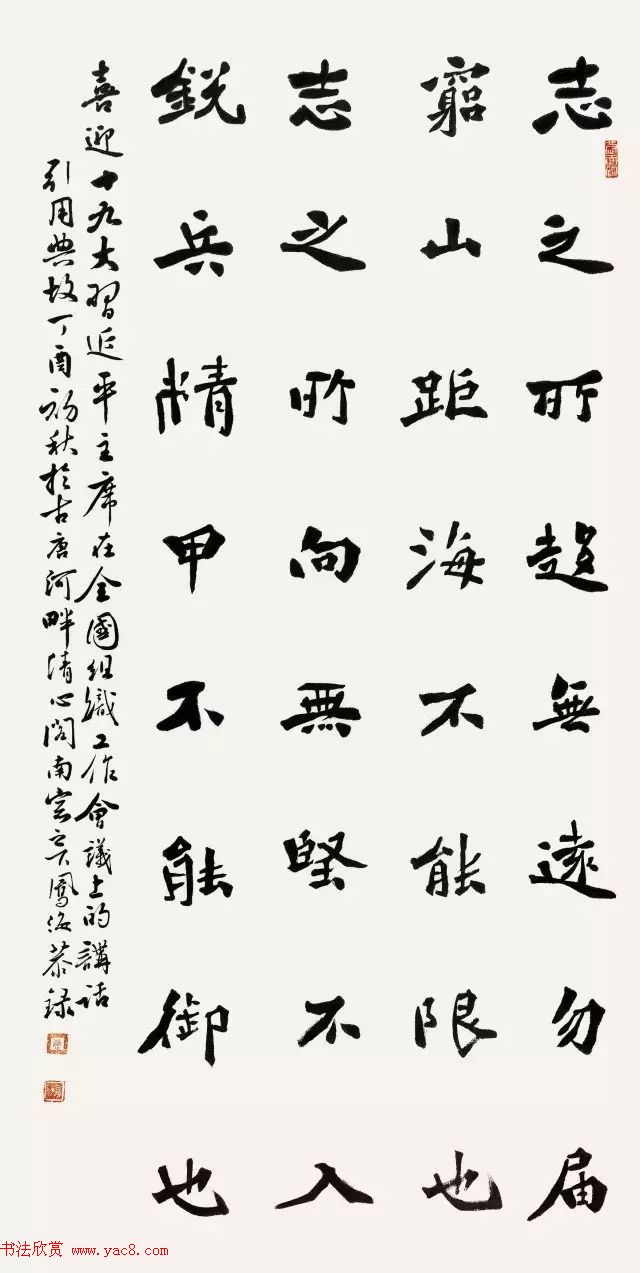 志之所趨無遠勿届
窮山距海不能限也
志之所向無堅不入
鋭兵精甲不能御也
喜迎十九大習近平主席在全國組織工作會議上的講話
引用典故丁酉初秋於古唐河畔清心閣南鳳恭録
书法欣赏 www.yac8.com